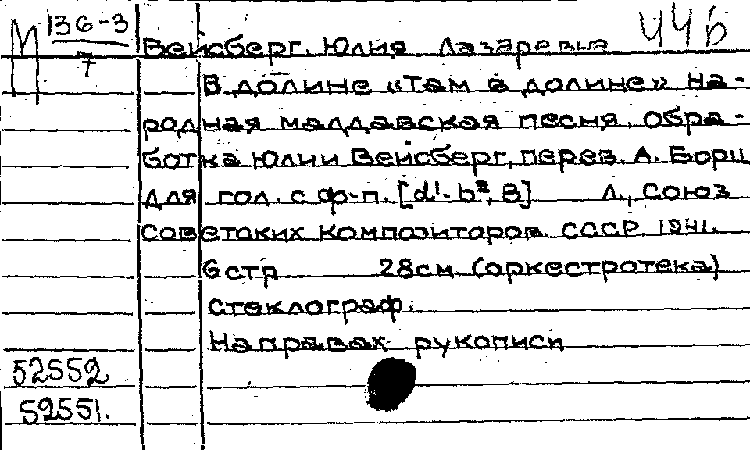 М 136-3
7
Вейсберг, Юлия Лазаревна 446
В долине «Там в долине» на-
родная малдавская песня, обра-
ботка Юлии Вейсберг, перев. А. Борщ
Для гол. с ф-п. [d¹-b², B] Л., Союз
Советских Композиторов СССР, 1941.
6 стр 28см. (оркестротека)
стеклограф.
На правах рукописи
52552
52551.